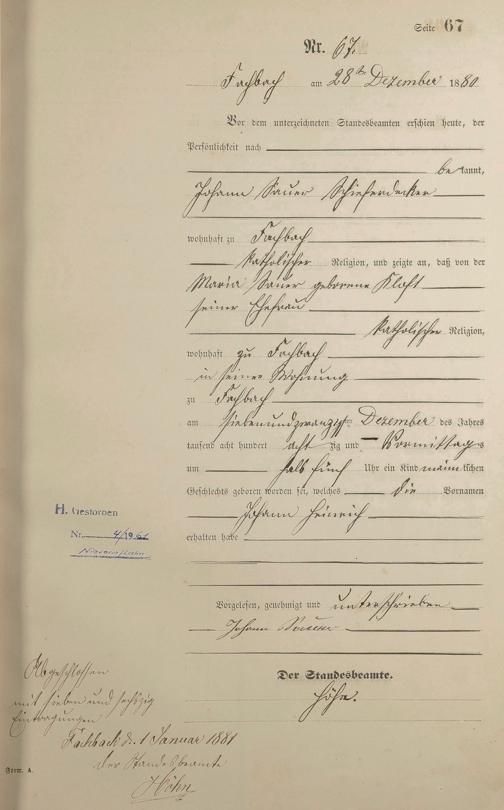 Seite 67
Nr. 67.
Fachbach am 28ten Dezember 1880
Vor dem unterzeichneten Standesbeamten erschien heute, der
Persönlichkeit nach
bekannt,
Johann Sauer Schieferdecker
wohnhaft zu Fachbach
katholischer Religion, und zeigte an, daß von der
Maria Sauer geborene Kloft
seiner Ehefrau
katholischer Religion,
wohnhaft zu Fachbach
in seiner Wohnung
zu Fachbach
am siebenundzwanzigten Dezember des Jahres
tausend acht hundert achtzig und Vormittags
um halb fünf Uhr ein Kind männlichen
Geschlechts geboren worden sei, welches die Vornamen
Johann Heinrich
erhalten habe
H. Gestorben
Nr. 4/1961
Vorgelesen, genehmigt und unterschrieben
Johann Sauer
Der Standesbeamte.
Höhn.
Abgeschlossen
mit sieben und sechszig
Eintragungen
Fachbach d. 1 Januar 1881
Der Standesbeamte
Höhn
Form. A.